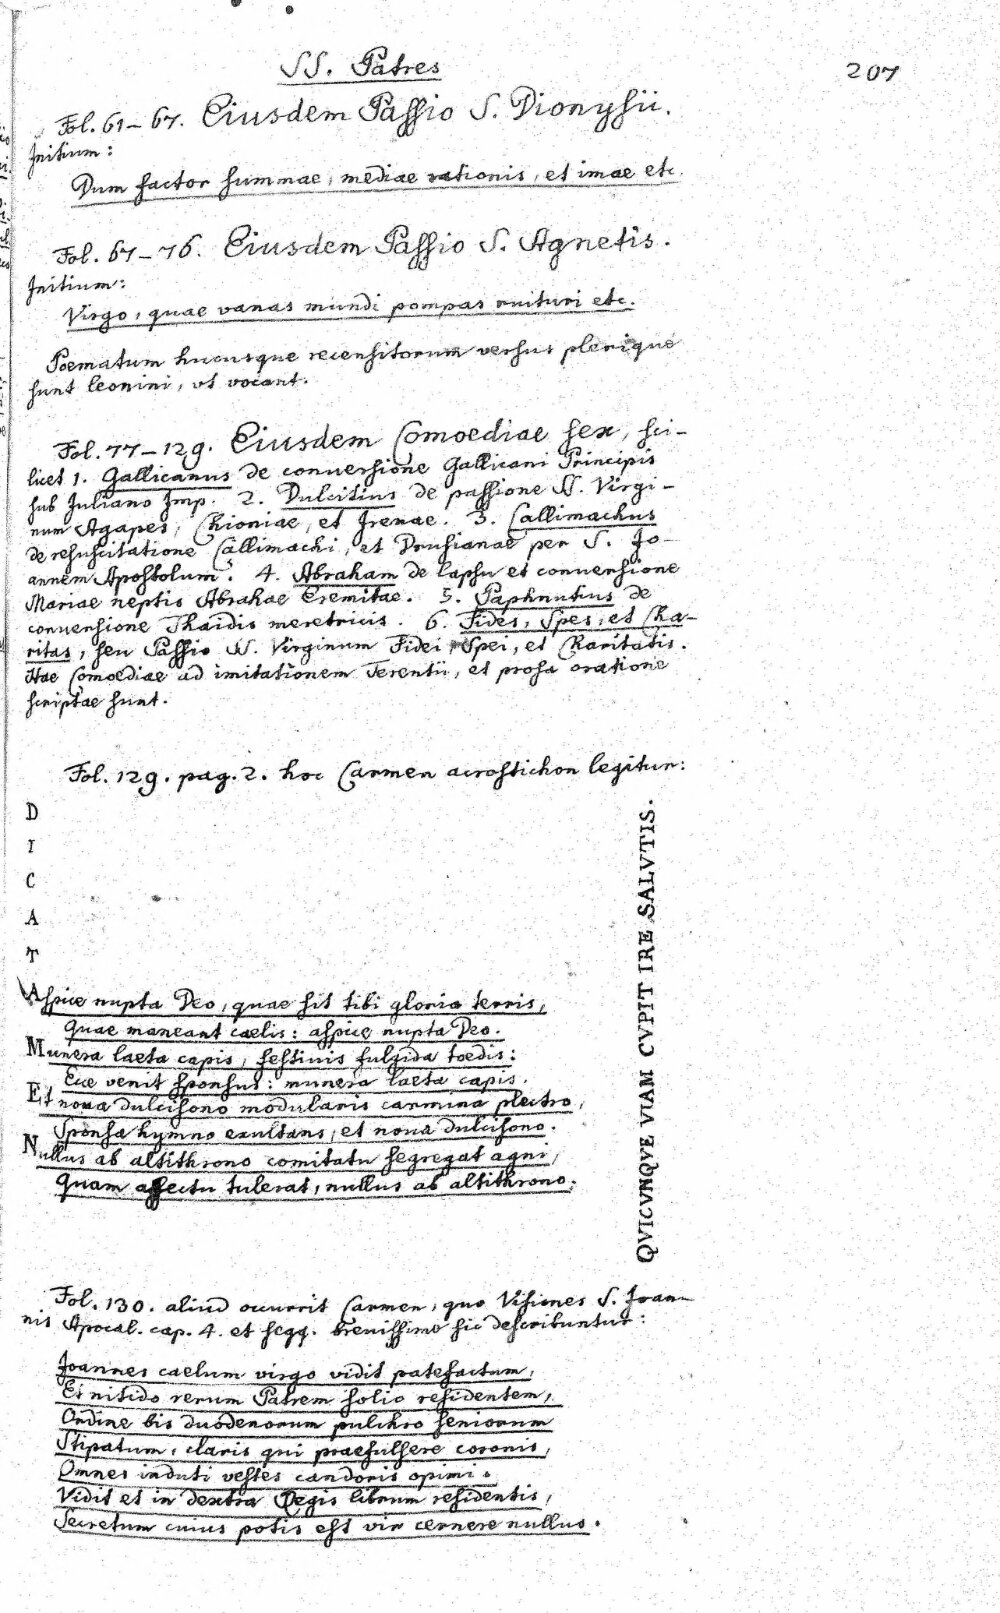 SS. Patres
207
Fol. 61–67. Eiusdem Passio S. Dionysii.
Initium:
Dum factor summae, mediae rationis, et imae etc.
Fol. 67–76. Eiusdem Passio S. Agnetis.
Initium:
Virgo, quae vanas mundi pompas ruituri etc.
Poematum hucusque recensitorum versus plerique
sunt leonini, ut vocant.
Fol. 77–129. Eiusdem Comoediae sex, sci-
licet 1. Gallicanus de conversione Gallicani Principis
sub Juliano Imp. 2. Dulcitius de passione SS. Virgi-
num Agapes, Chioniae, et Irenae. 3. Callimachus
de resuscitatione Callimachi, et Drusianae per S. Jo-
annem Apostolum. 4. Abraham de lapsu et conuersione
Mariae neptis Abrahae Eremitae. 5. Paphnutius de
conuersione Thaidis meretricis. 6. Fides, Spes, et Cha-
ritas, seu Passio SS. Virginum Fidei, Spei, et Charitatis.
Hae Comoediae ad imitationem Terentii, et prosa oratione
scriptae sunt.
Fol. 129. pag. 2. hoc Carmen acrostichon legitur:
D
I
C
A
T
Aspice nupta Deo, quae sit tibi gloria terris,
Quae maneant caelis: aspice nupta Deo.
Munera laeta capis, festinis fulgida toedis:
Ecce venit sponsus: munera laeta capis.
Et noua dulcisono modularis carmina plectro,
Sponsa hymno exultans, et noua dulcisono.
Nullus ab altithrono comitatu segregat agni,
Quam affectu tulerat, nullus ab altithrono.
QVICVNQVE VIAM CVPIT IRE SALVTIS.
Fol. 130. aliud occurrit Carmen, quo Visiones S. Joan-
nis Apocal. cap. 4. et seqq. brevissime sic describuntur:
Joannes caelum virgo vidit patefactum,
Et nitido rerum Patrem solio residentem,
Ordine bis duodenorum pulchro seniorum
Stipatum, claris qui praefulsere coronis,
Omnes induti vestes candoris opimi.
Vidit et in dextra Regis librum residentis,
Secretum cuius potis est vir cernere nullus.